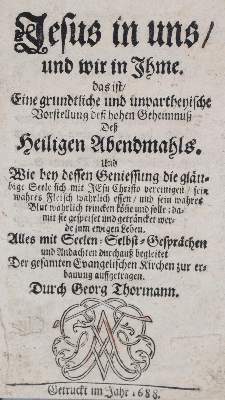 Jesus in uns/
und wir in Ihme.
das ist/
Eine grundtliche und unpartheyische
Vorstellung deß hohen Geheimnuß
Deß
Heiligen Abendmahls.
Und
Wie bey dessen Geniessung die gläu-
bige Seele sich mit JEsu Christo vereinigen / sein
wahres Fleisch wahrlich essen / und sein wahres
Blut wahrlich trincken könne und solle: da-
mit sie gespeiset und getråncket wer-
de zum ewigen Leben.
Alles mit Seelen-Selbst-Gesprächen
und Andachten durchauß begleitet
Der gesamten Evangelischen Kirchen zur er-
bauung auffgetragen.
Durch Georg Thormann.
Getruckt im Jahr 1688.